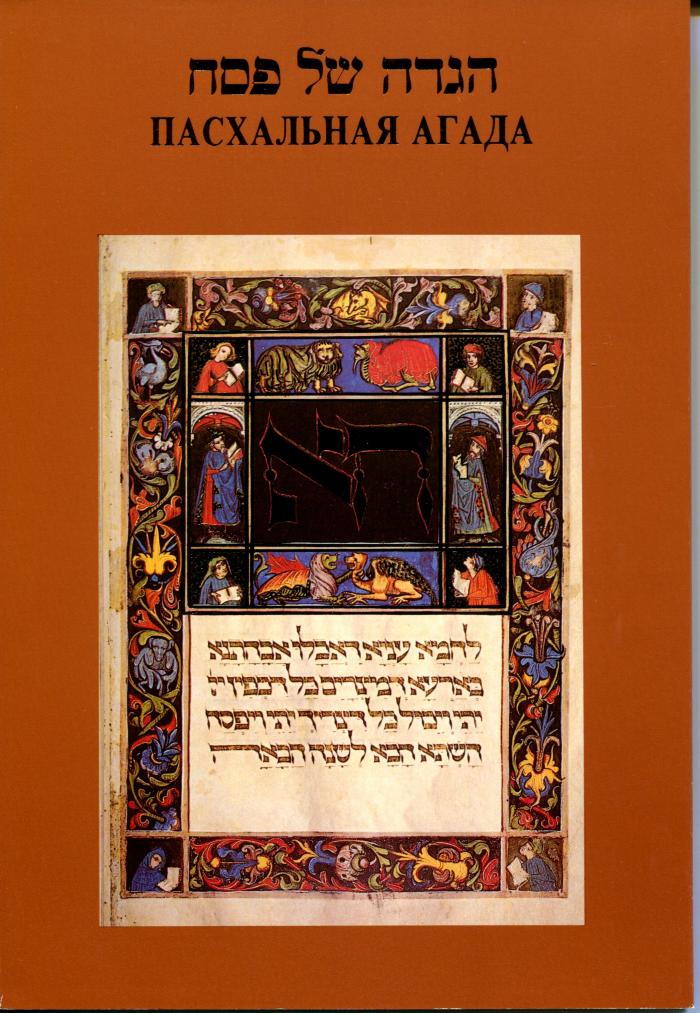 הגדה של פסח
ПАСХАЛЬНАЯ АГАДА
הא
לחמא עניא דאכלו אבהתנא
בארעא דמצרים כל דכפין יי
יתי וייכול כל דצריך יתי וייפסח
השתא הכא לשנה הבאה